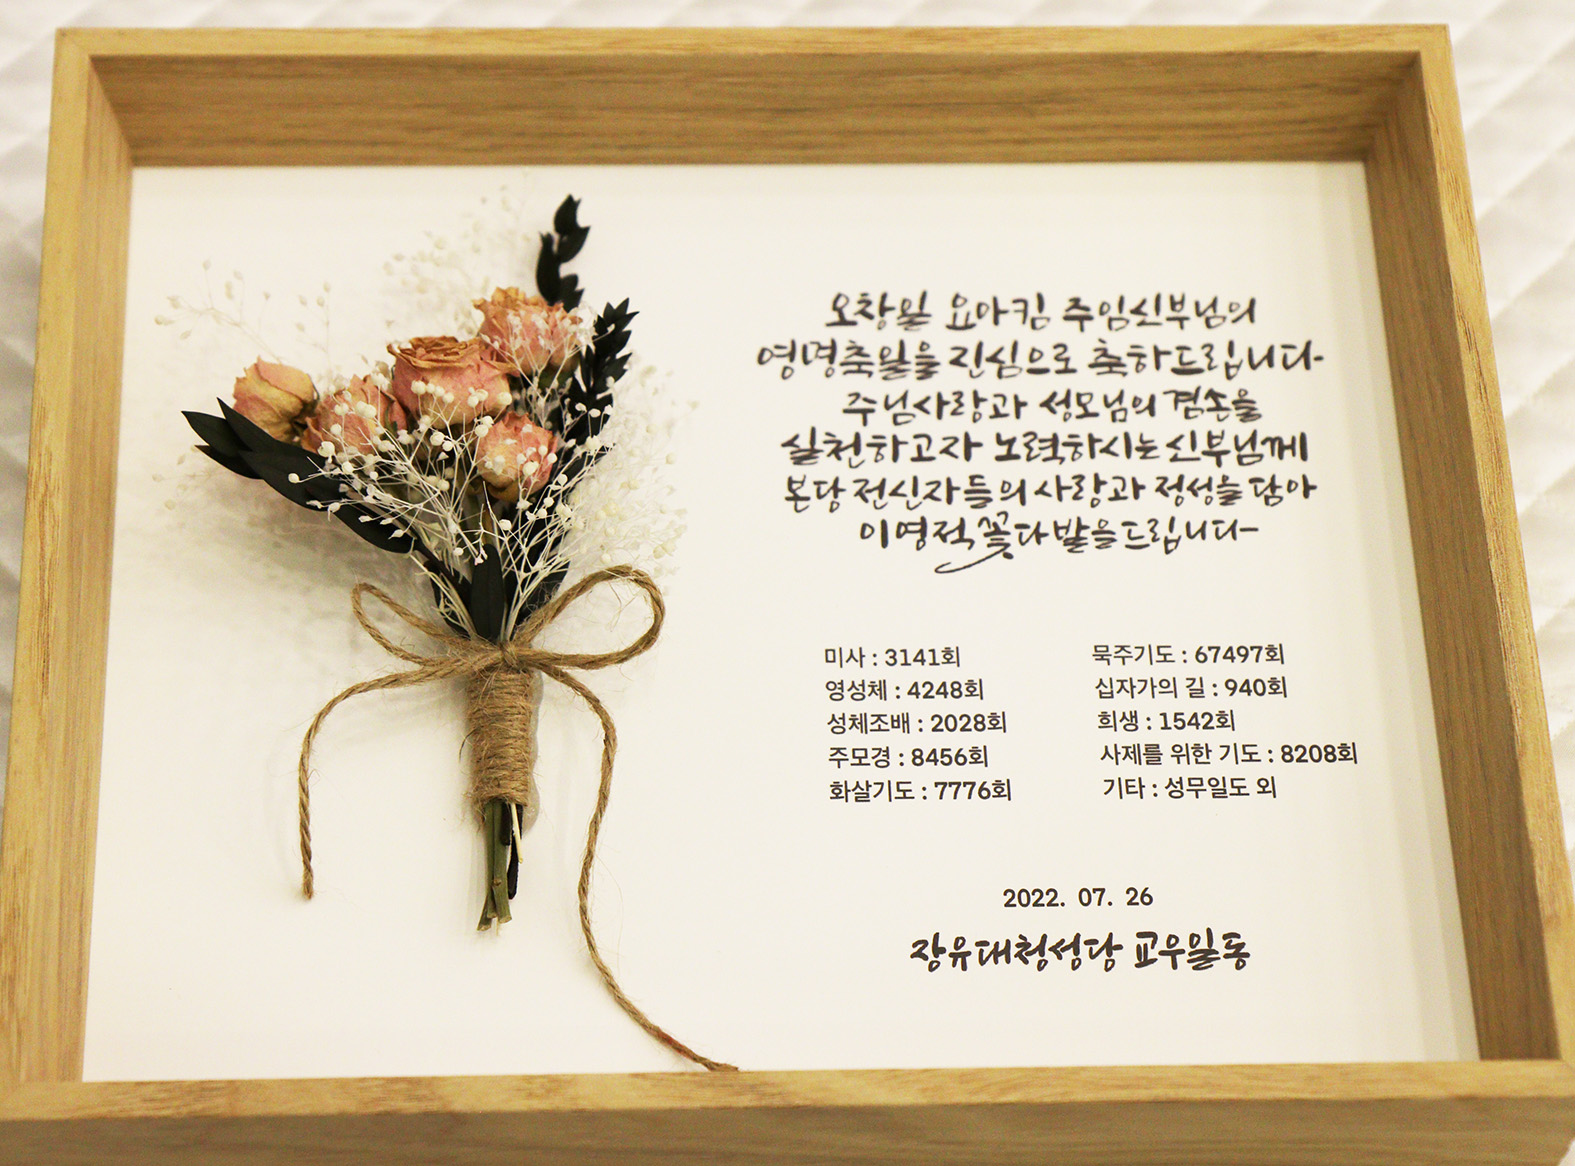 오창일 요아킴 주임신부님의
영명축일을 진심으로 축하드립니다
주님사랑과 성모님의 겸손을
실천하고자 노력하시는 신부님께
본당 전신자들의 사랑과 정성을 담아
이 영적 꽃다발을 드립니다
미사 : 3141회
묵주기도 : 67497회
영성체 : 4248회
십자가의 길 : 940회
성체조배 : 2028회
희생 : 1542회
주모경 : 8456회
사제를 위한 기도 : 8208회
화살기도 : 7776회
기타 : 성무일도 외
2022. 07. 26
장유대청성당 교우일동